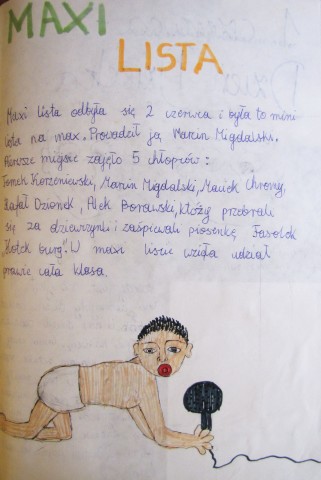 MAXI
LISTA
Maxi lista odbyła się 2 czerwca i była to mini
lista na max. Prowadził ją Marcin Migdalski.
Pierwsze miejsce zajęło 5 chłopców:
Tomek Korzeniewski, Marcin Migdalski, Maciek Chromy,
Rafał Dzionek, Alek Borowski, którzy przebrali
się za dziewczynki i zaśpiewali piosenkę Fasolek
„Kotek burg". W maxi liście wzięła udział
prawie cała klasa.